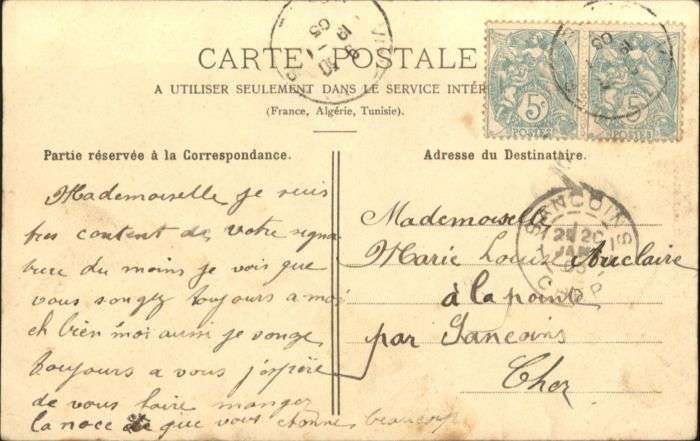 CARTE POSTALE
A UTILISER SEULEMENT DANS LE SERVICE INTÉR
(France, Algérie, Tunisie).
Partie réservée à la Correspondance.
Mademoiselle je suis
tres content de votre signa
ture du moins je vois que
vous songez toujours a moi
eh bien moi aussi je songe
toujours a vous j'espère
de vous faire manger
la noce que vous
beaucoup
Adresse du Destinataire.
Mademoiselle
Marie Louise Auclaire
à la pointe
par Sancoins
Cher
5c
POSTES
5
POSTES
SANCOINS
JANV
05
CHER
05